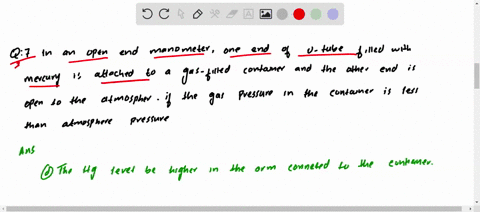 Q:7 In an open end manometer, one end of U-tube filled with
mercury is attached to a gas-filled container and the other end is
open to the atmospher. if the gas pressure in the container is less
than atmosphere pressure
Ans
(d) The Hg level be higher in the arm conneted to the container.